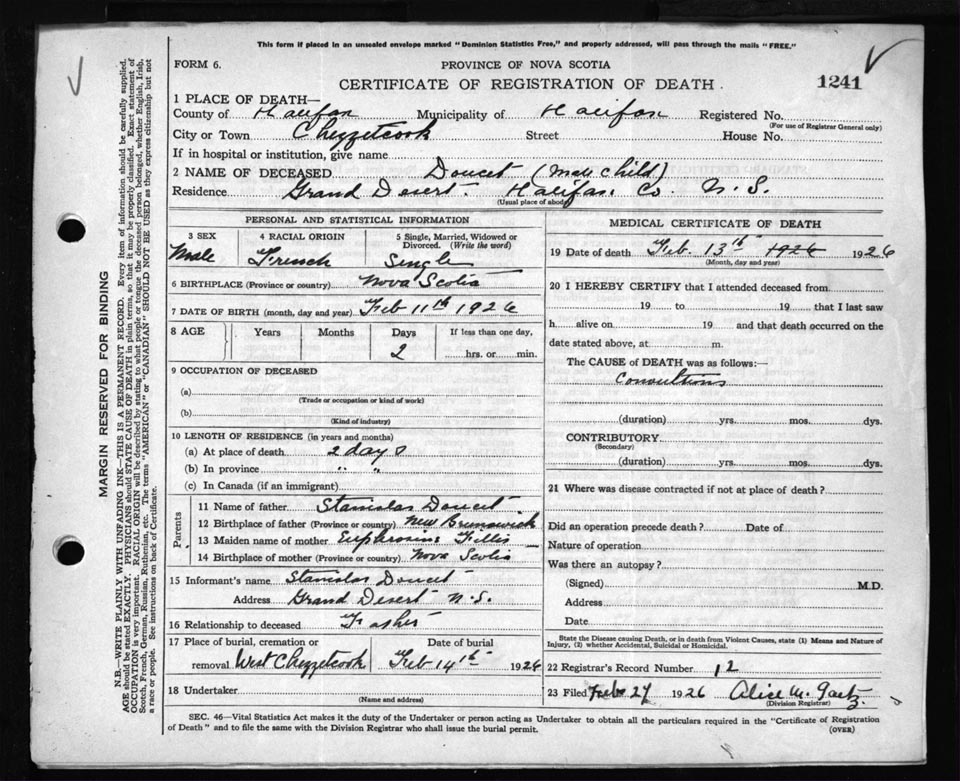 This form if placed in an unsealed envelope marked "Dominion Statistics Free," and properly addressed, will pass through the mails "FREE."
FORM 6.
PROVINCE OF NOVA SCOTIA
CERTIFICATE OF REGISTRATION OF DEATH
1241
1 PLACE OF DEATH—
County of Halifax Municipality of Halifax Registered No.
(For use of Registrar General only)
City or Town Chezzetcook Street House No.
If in hospital or institution, give name
2 NAME OF DECEASED Doucet (Male Child)
Residence Grand Desert Halifax Co. N.S.
(Usual place of abode)
PERSONAL AND STATISTICAL INFORMATION
3 SEX
Male
4 RACIAL ORIGIN
French
5 Single, Married, Widowed or Divorced. (Write the word)
Single
6 BIRTHPLACE (Province or country) Nova Scotia
7 DATE OF BIRTH (month, day and year) Feb 11th 1926
8 AGE Years Months Days If less than one day,
2 hrs. or min.
9 OCCUPATION OF DECEASED
(a)
(Trade or occupation or kind of work)
(b)
(Kind of industry)
10 LENGTH OF RESIDENCE (in years and months)
(a) At place of death 2 days
(b) In province " "
(c) In Canada (if an immigrant)
Parents
11 Name of father Stanislas Doucet
12 Birthplace of father (Province or country) New Brunswick
13 Maiden name of mother Euphrosine
14 Birthplace of mother (Province or country) Nova Scotia
15 Informant's name Stanislas Doucet
Address Grand Desert N.S.
16 Relationship to deceased Father
17 Place of burial, cremation or Date of burial
removal West Chezzetcook Feb 14th 1926
18 Undertaker
(Name and address)
MEDICAL CERTIFICATE OF DEATH
19 Date of death Feb. 13th 1926 1926
(Month, day and year)
20 I HEREBY CERTIFY that I attended deceased from
19 to 19 that I last saw
h alive on 19 and that death occurred on the
date stated above, at m.
The CAUSE of DEATH was as follows:—
Convultions
(duration) yrs. mos. dys.
CONTRIBUTORY
(Secondary)
(duration) yrs. mos. dys.
21 Where was disease contracted if not at place of death?
Did an operation precede death? Date of
Nature of operation
Was there an autopsy?
(Signed) M.D.
Address
Date
State the Disease causing Death, or in death from Violent Causes, state (1) Means and Nature of
Injury, (2) whether Accidental, Suicidal or Homicidal.
22 Registrar's Record Number 12
23 Filed Feb 27 1926 Alice M. Gaetz
(Division Registrar)
SEC. 46—Vital Statistics Act makes it the duty of the Undertaker or person acting as Undertaker to obtain all the particulars required in the "Certificate of Registration
of Death" and to file the same with the Division Registrar who shall issue the burial permit.
(OVER)
MARGIN RESERVED FOR BINDING
N.B.—WRITE PLAINLY WITH UNFADING INK—THIS IS A PERMANENT RECORD. Every item of information should be carefully supplied.
AGE should be stated EXACTLY. PHYSICIANS should STATE CAUSE OF DEATH in plain terms, so that it may be properly classified. Exact statement of
OCCUPATION is very important. RACIAL ORIGIN will be described by stating to what people or tongue the deceased person belonged, whether English, Irish,
Scotch, French, German, Russian, Ruthenian, etc. The terms "AMERICAN" or "CANADIAN" SHOULD NOT BE USED as they express citizenship but not
a race or people. See instructions on back of Certificate.